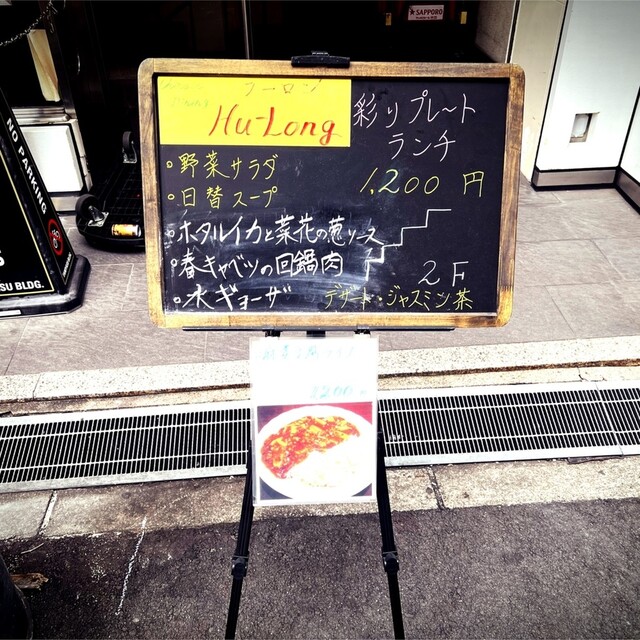 ★SAPPORO
フーロン
Hu-Long
彩りプレート
ランチ
1,200円
・野菜サラダ
・日替スープ
・ホタルイカと菜花の葱ソース
・春キャベツの回鍋肉
・水ギョーザ
2F
デザート・ジャスミン茶
NO PARKING
SU BLDG.